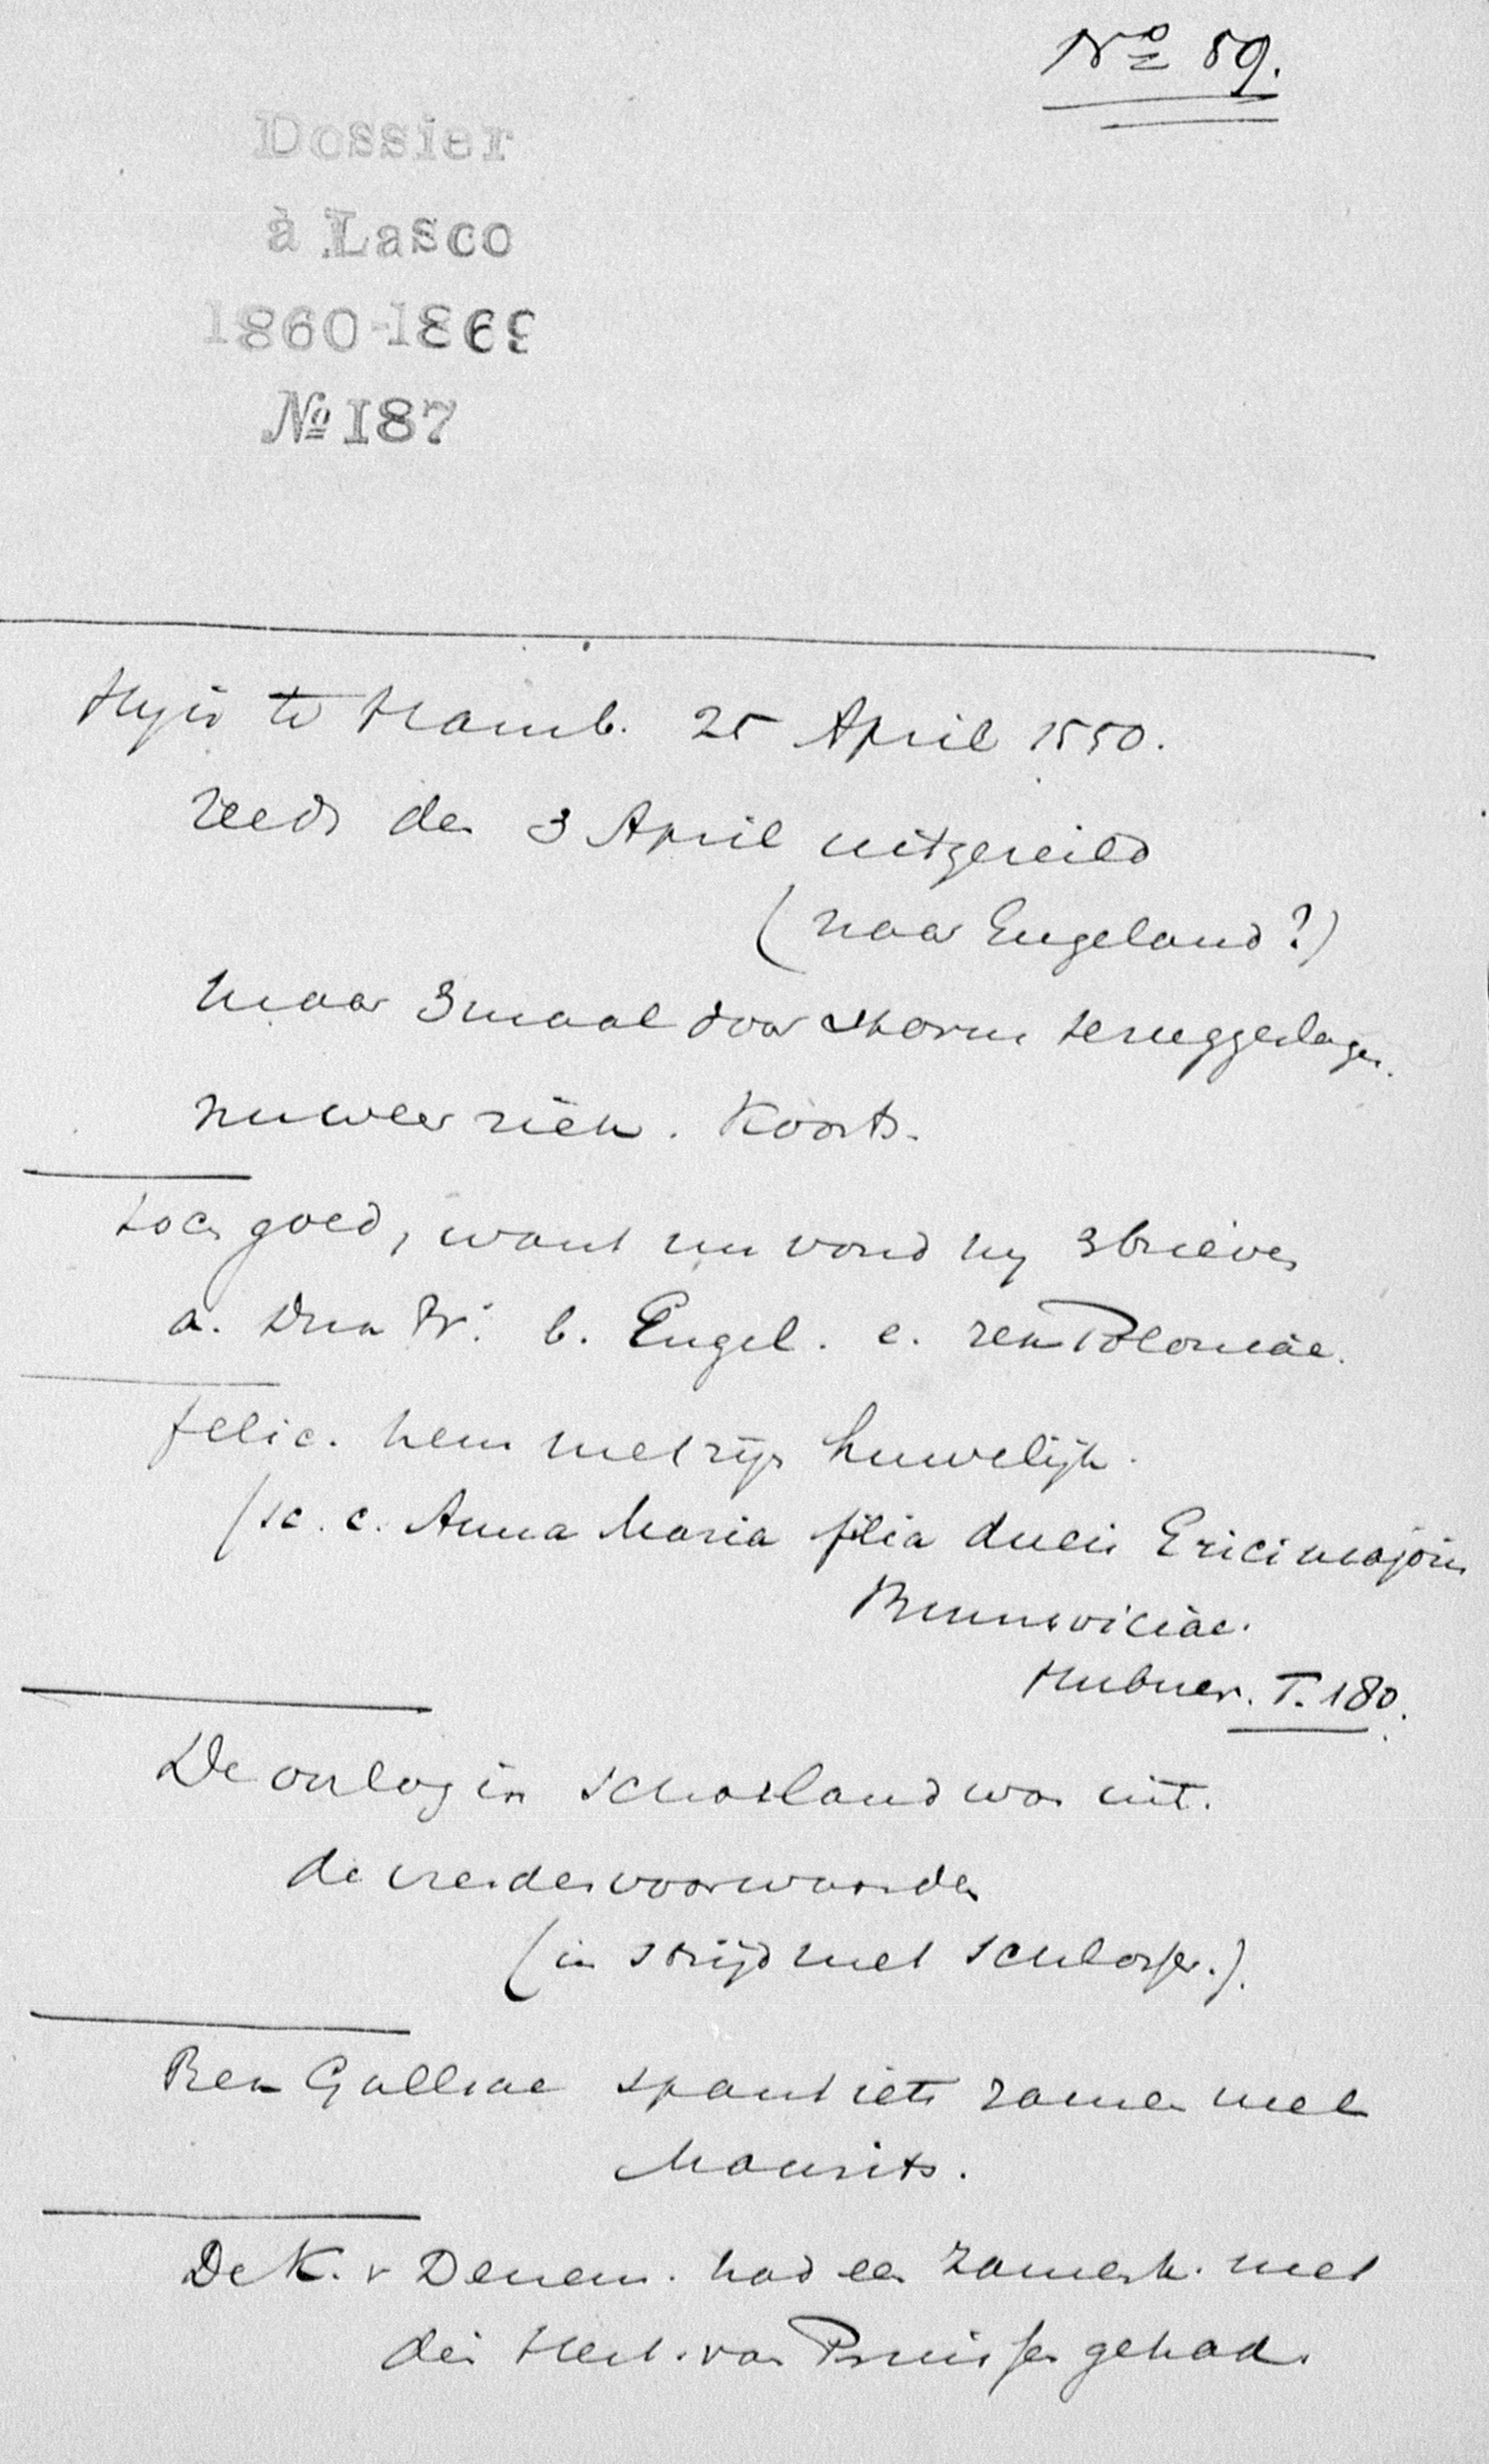 No 89.
Dossier
à Lasco
1860-1869
No 187
Hij is te Hamb. 25 April 1550.
reeds den 3 April uitgezeild
(naar Engeland?)
maar 3 maal door storm teruggeslagen.
nu weer ziek. Koorts.
toch goed, want nu vond hij 3 brieven
a. b. Engel. c. rex Poloniae.
felic. hem met zijn huwelijk.
(sc. c. Anna Maria filia ducis Erici majoris
Brunsviciae.
Hubner. T. 180.
De oorlog in Schotland was uit.
de vredesvoorwaarden
(in strijd met Schlosser.).
Rex Galliae spant iets zamen met
Maurits.
De K. v Denem. had een zamenk. met
den Hert. van Pruissen gehad.